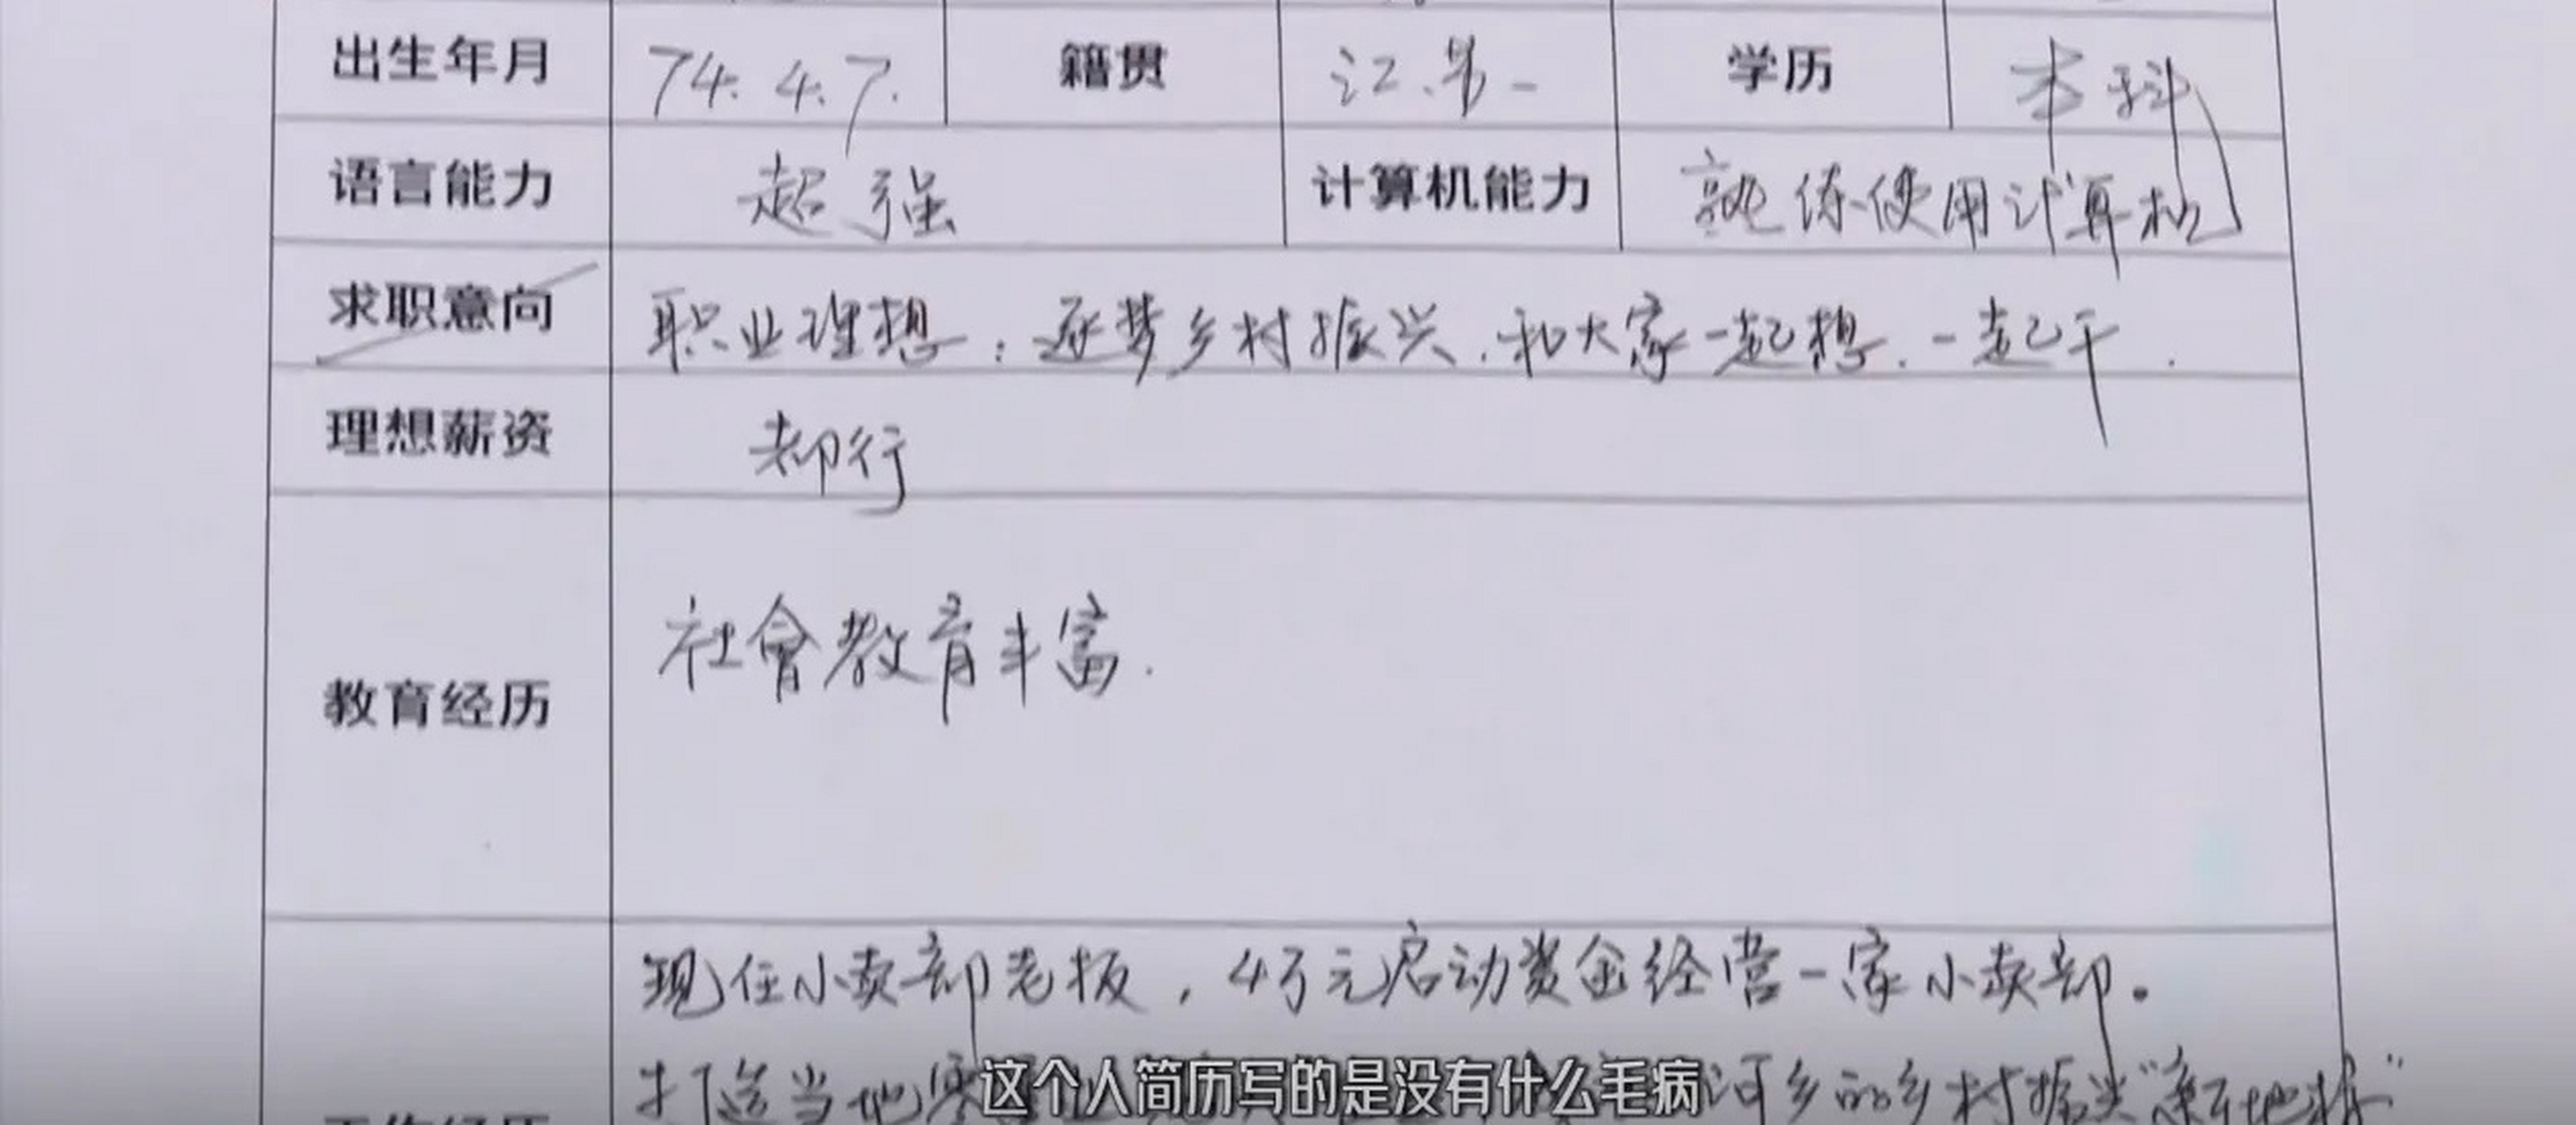 出生年月 74.4.7. 籍贯 江苏 学历 本科
语言能力 超强 计算机能力 熟练使用计算机
求职意向 职业理想：逐梦乡村振兴，和大家一起想，一起干．
理想薪资 都行
教育经历 社會教育丰富．
现任小卖部老板，4万元启动资金经营一家小卖部。
工作经历 打造当地 河乡的乡村振兴"新地标"
这个人简历写的是没有什么毛病